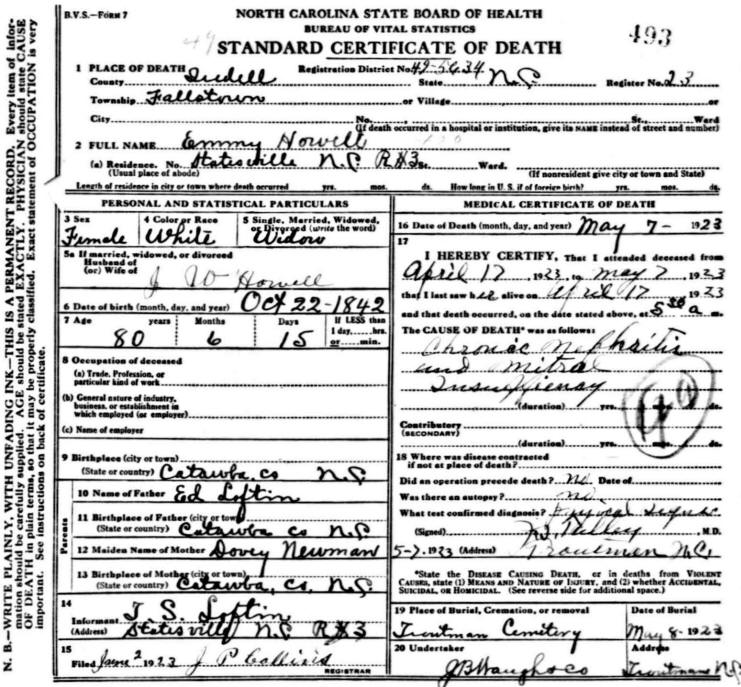 B.V.S.—FORM 7
NORTH CAROLINA STATE BOARD OF HEALTH
BUREAU OF VITAL STATISTICS
STANDARD CERTIFICATE OF DEATH
49
493
1 PLACE OF DEATH Iredell Registration District No. 49-5634
County State N.C. Register No. 23
Township Fallstown or Village or
City No. St., Ward
(If death occurred in a hospital or institution, give its NAME instead of street and number)
2 FULL NAME Emmy Howell
(a) Residence. No. Statesville N.C. R#3 St. Ward.
(Usual place of abode) (If nonresident give city or town and State)
Length of residence in city or town where death occurred yrs. mos. ds. How long in U. S. if of foreign birth? yrs. mos. ds.
PERSONAL AND STATISTICAL PARTICULARS
3 Sex 4 Color or Race 5 Single, Married, Widowed, or Divorced (write the word)
Female White Widow
5a If married, widowed, or divorced
Husband of
(or) Wife of J W Howell
6 Date of birth (month, day, and year) Oct 22-1842
7 Age years Months Days If LESS than
1 day,....hrs.
or....min.
80 6 15
8 Occupation of deceased
(a) Trade, Profession, or
particular kind of work
(b) General nature of industry,
business, or establishment in
which employed (or employer)
(c) Name of employer
9 Birthplace (city or town)
(State or country) Catawba co N.C.
Parents
10 Name of Father Ed Loftin
11 Birthplace of Father (city or town)
(State or country) Catawba co N.C.
12 Maiden Name of Mother Dovey Newman
13 Birthplace of Mother (city or town)
(State or country) Catawba, Co, N.C.
14
Informant T. S. Loftin
(Address) Statesville N.C. R#3
15
Filed June 2 1923 J P Collins
REGISTRAR
MEDICAL CERTIFICATE OF DEATH
16 Date of Death (month, day, and year) May 7- 1923
17
I HEREBY CERTIFY, That I attended deceased from
April 17, 1923, to May 7, 1923
that I last saw her alive on April 17, 1923
and that death occurred, on the date stated above, at 5 30 a m.
The CAUSE OF DEATH* was as follows:
Chronic Nephritis
and Mitral
Insufficiency
(duration) yrs. mos. ds.
Contributory
(SECONDARY)
(duration) yrs. mos. ds.
18 Where was disease contracted
if not at place of death?
Did an operation precede death? no Date of
Was there an autopsy? no
What test confirmed diagnosis?
(Signed) M.D.
5-7, 1923 (Address) Troutman N.C.
*State the DISEASE CAUSING DEATH, or in deaths from VIOLENT
CAUSES, state (1) MEANS AND NATURE OF INJURY, and (2) whether ACCIDENTAL,
SUICIDAL, OR HOMICIDAL. (See reverse side for additional space.)
19 Place of Burial, Cremation, or removal Date of Burial
Troutman Cemetery May 8- 1923
20 Undertaker Address
J B Waugh & co Troutman N.C.
N. B.—WRITE PLAINLY, WITH UNFADING INK—THIS IS A PERMANENT RECORD. Every item of infor-
mation should be carefully supplied. AGE should be stated EXACTLY. PHYSICIAN should state CAUSE
OF DEATH in plain terms, so that it may be properly classified. Exact statement of OCCUPATION is very
important. See instructions on back of certificate.